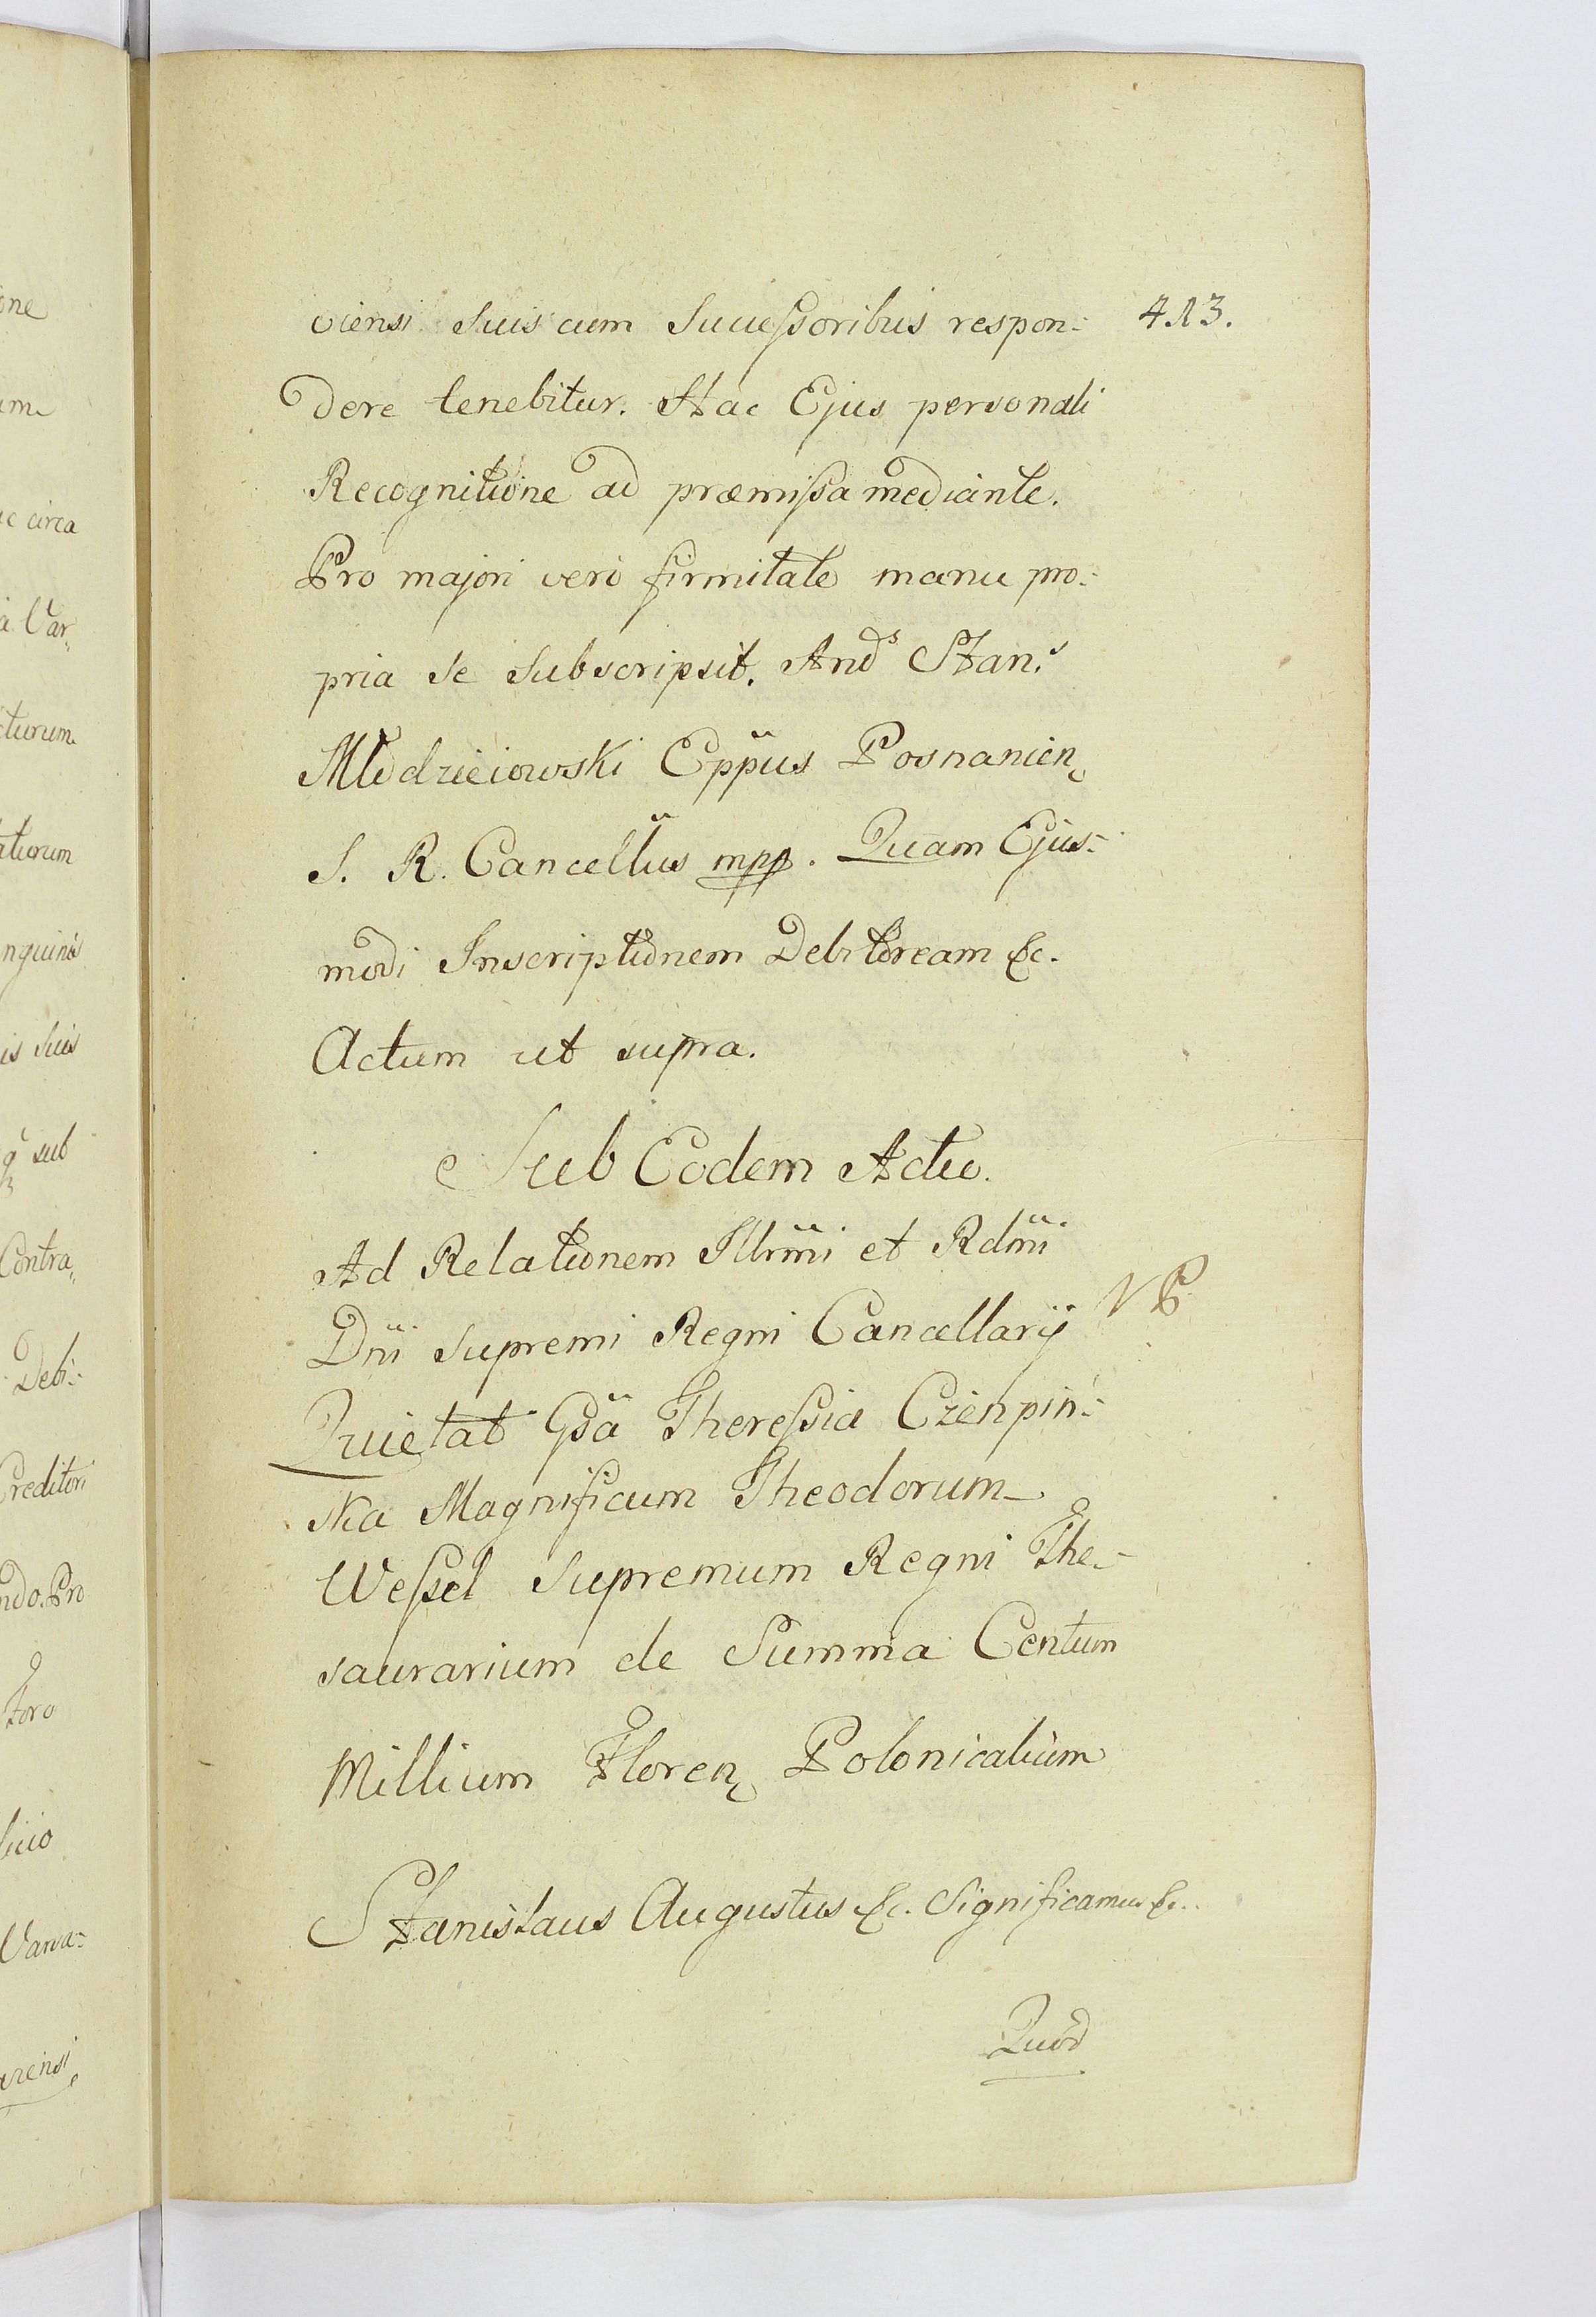 viensi suis cum Successoribus respon- 413.
dere tenebitur. Hac Ejus personali
Recognitione ad præmissa mediante.
Pro majori vero firmitate manu pro-
pria se subscripsit. And.s Stan.s
Młodzieiowski Eppus Posnanien,
S. R. Cancellus mpp. Quam Ejus-
modi Inscriptionem Debitoream &c.
Actum ut supra.
Sub Eodem Actu.
Ad Relationem Illrmi et Rdmi
Dni supremi Regni Cancellarij
Quietat Gsa Theressia Czenpin-
ska Magnificum Theodorum
Wessel Supremum Regni The-
saurarium de Summa Centum
Millium Floren, Polonicalium
Stanislaus Augustus &c. Significamus &c.
Quod
one
um
ac circa
a Var,,
cturum
atiorum
nguinis
is suis
q sub
Contra,,
Debi-
Creditori
ndo. Pro
toro
Varsa-